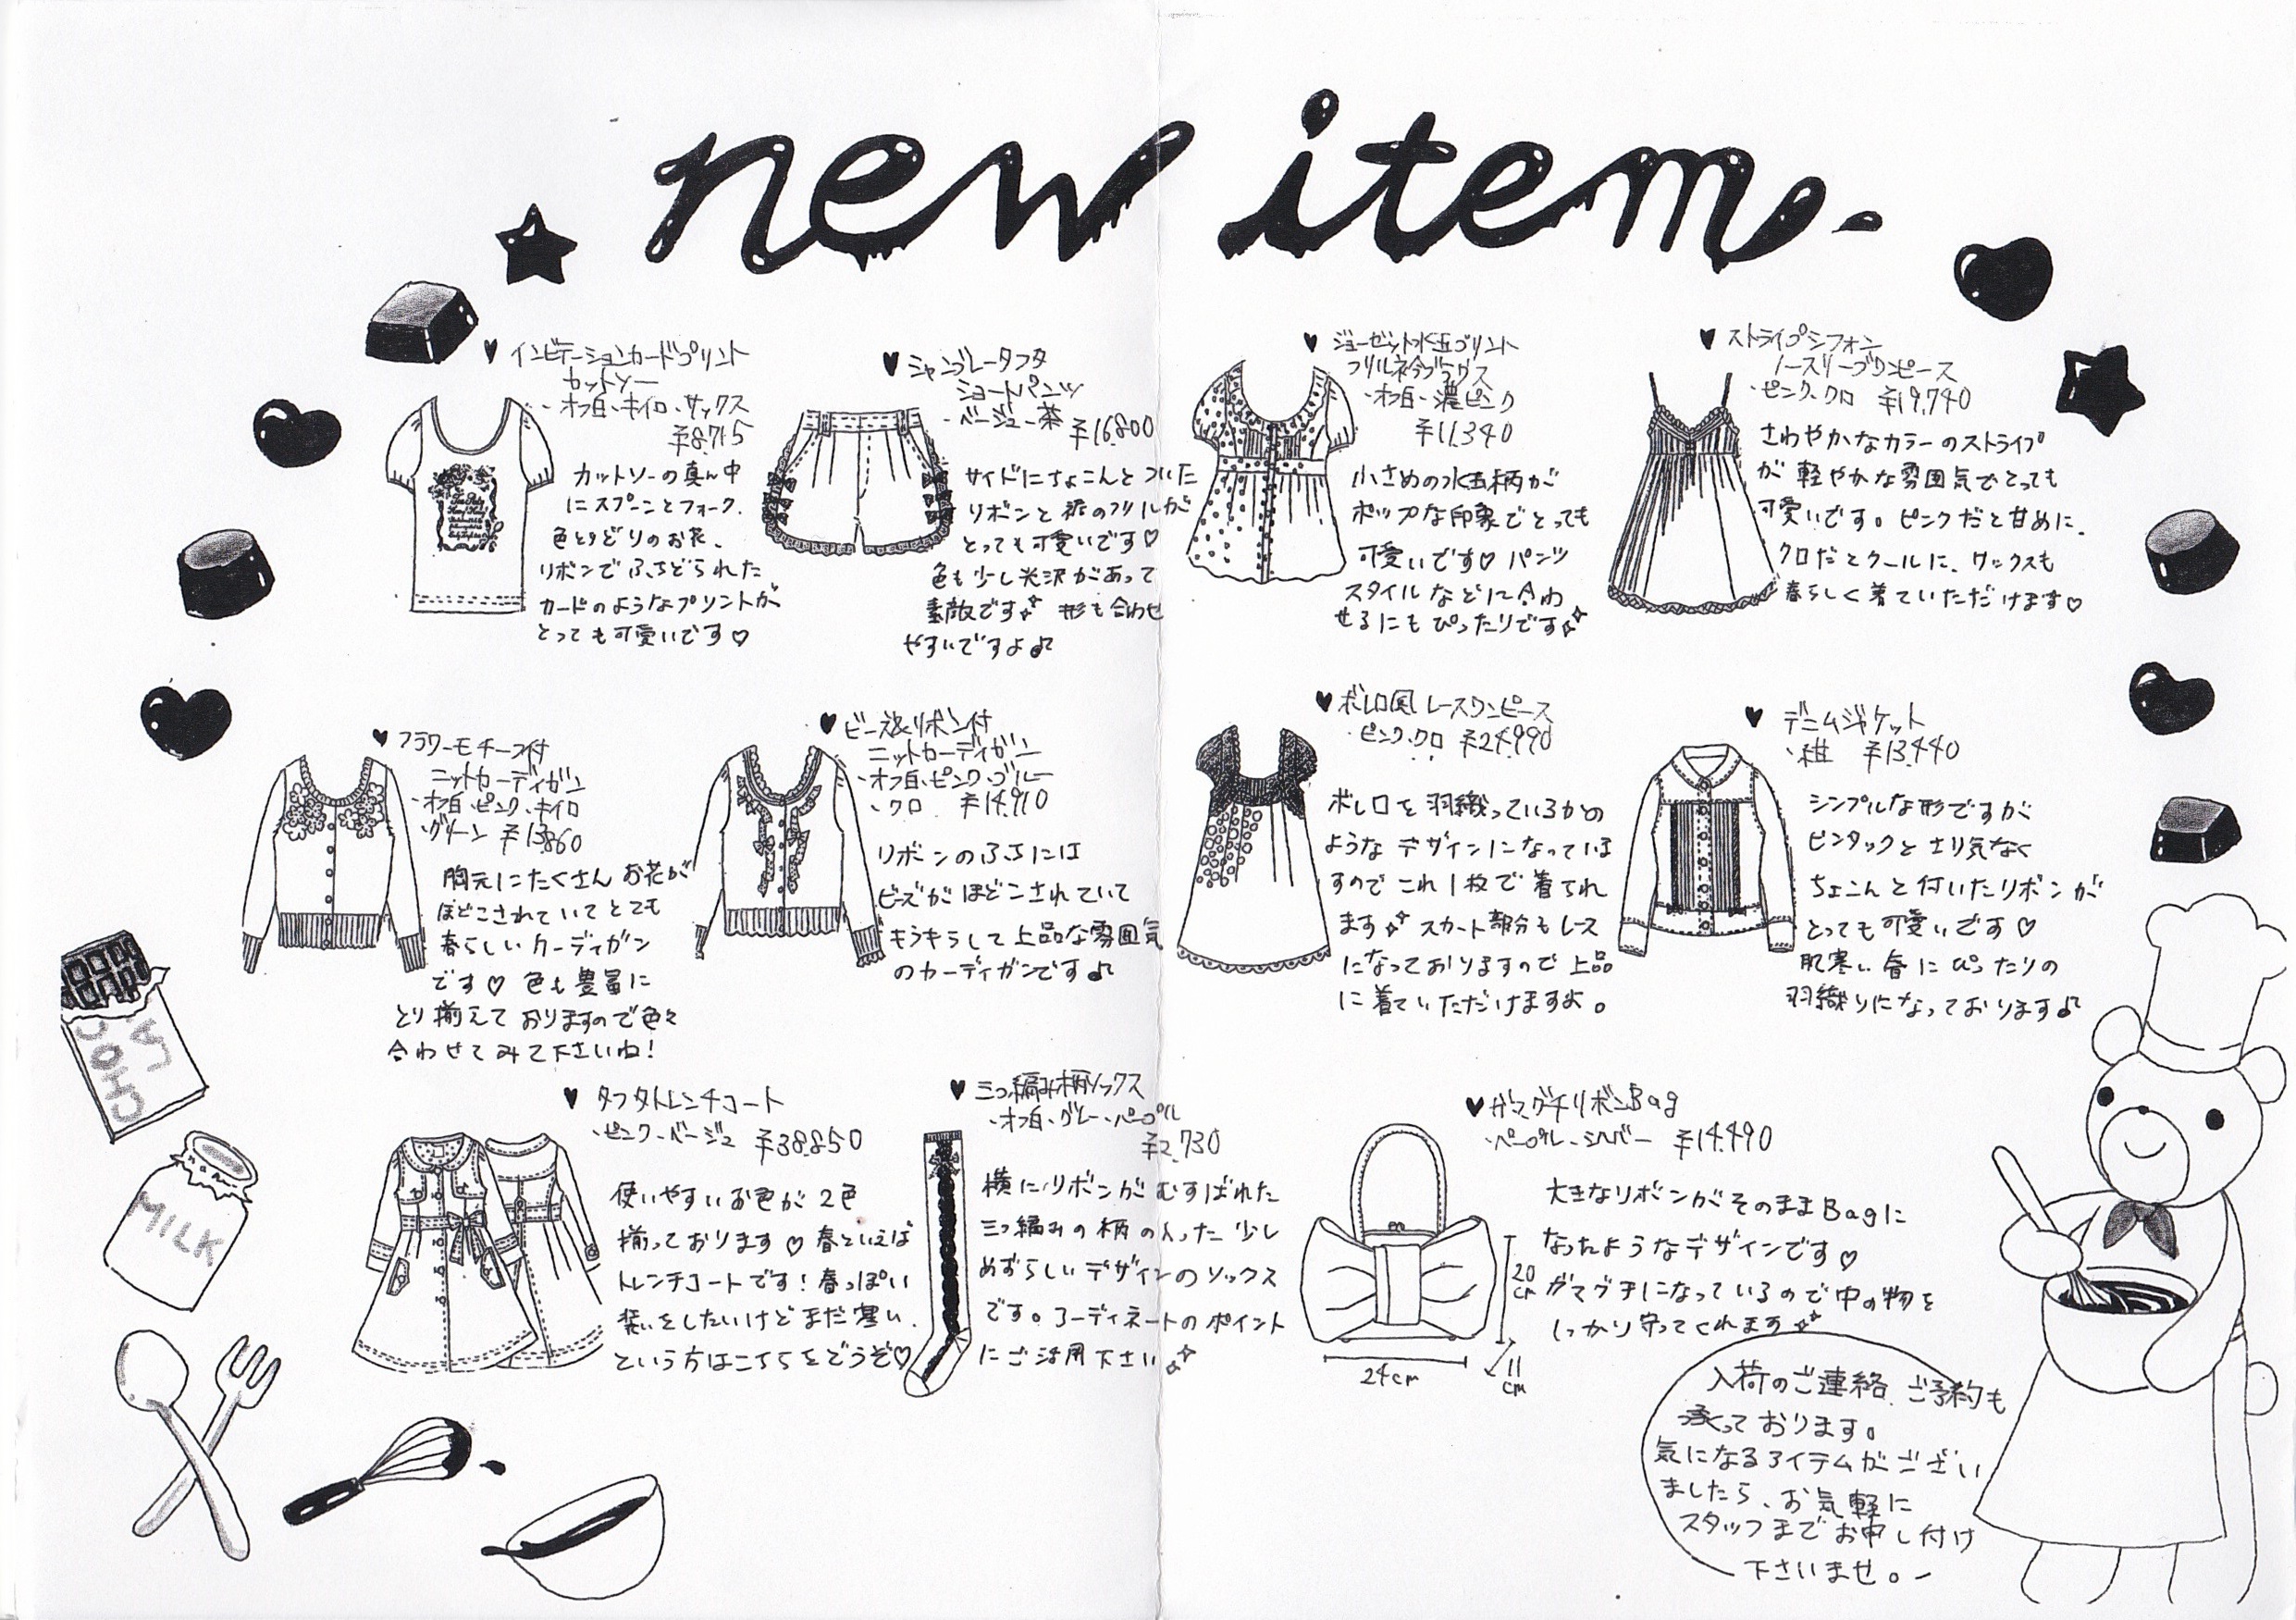 new item.
♥ インビテーションカードプリント
カットソー
・オフ白、キイロ、サックス
¥8,715
カットソーの真ん中
にスプーンとフォーク、
色とりどりのお花、
リボンでふちどられた
カードのようなプリントが
とっても可愛いです♡
♥ シャンブレータフタ
ショートパンツ
・ベージュ、茶 ¥16,800
サイドにちょこんとついた
リボンと裾のフリルが
とっても可愛いです♡
色も少し光沢があって
素敵です 形も合わせ
やすいですよ♪
♥ ジョーゼット水玉プリント
フリル衿ブラウス
・オフ白、濃ピンク
¥11,340
小さめの水玉柄が
ポップな印象でとっても
可愛いです♡ パンツ
スタイルなどに合わ
せるにもぴったりです
♥ ストライプシフォン
ノースリーブワンピース
・ピンク、クロ ¥19,740
さわやかなカラーのストライプ
が軽やかな雰囲気でとっても
可愛いです。ピンクだと甘めに、
クロだとクールに、ワックスも
春らしく着ていただけます♡
♥ フラワーモチーフ付
ニットカーディガン
・オフ白、ピンク、キイロ
・グリーン ¥13,860
胸元にたくさんお花が
ほどこされていてとても
春らしいカーディガン
です♡ 色も豊富に
とり揃えておりますので色々
合わせてみて下さいね!
♥ ビーズ&リボン付
ニットカーディガン
・オフ白、ピンク、ブルー
・クロ ¥14,910
リボンのふちには
ビーズがほどこされていて
キラキラして上品な雰囲気
のカーディガンです♪
♥ ボレロ風レースワンピース
・ピンク、クロ ¥24,990
ボレロを羽織っているかの
ようなデザインになっていま
すのでこれ1枚で着られ
ます スカート部分もレース
になっておりますので上品
に着ていただけますよ。
♥ デニムジャケット
・紺 ¥13,440
シンプルな形ですが
ピンタックとさり気なく
ちょこんと付いたリボンが
とっても可愛いです♡
肌寒い春にぴったりの
羽織りになっております♪
♥ タフタトレンチコート
・ピンク、ベージュ ¥38,850
使いやすいお色が2色
揃っております♡ 春といえば
トレンチコートです!春っぽい
装いをしたいけどまだ寒い、
という方はこちらをどうぞ♡
♥ 三つ編み柄ソックス
・オフ白、グレー、パープル
¥2,730
横にリボンがむすばれた
三つ編みの柄の入った少し
めずらしいデザインのソックス
です。コーディネートのポイント
にご活用下さい
♥ ガマグチリボンBag
・パープル、シルバー ¥14,490
大きなリボンがそのままBagに
なったようなデザインです♡
ガマグチになっているので中の物を
しっかり守ってくれます
20cm
24cm
11cm
CHOCO
MILK
入荷のご連絡、ご予約も
承っております。
気になるアイテムがござい
ましたら、お気軽に
スタッフまでお申し付け
下さいませ。